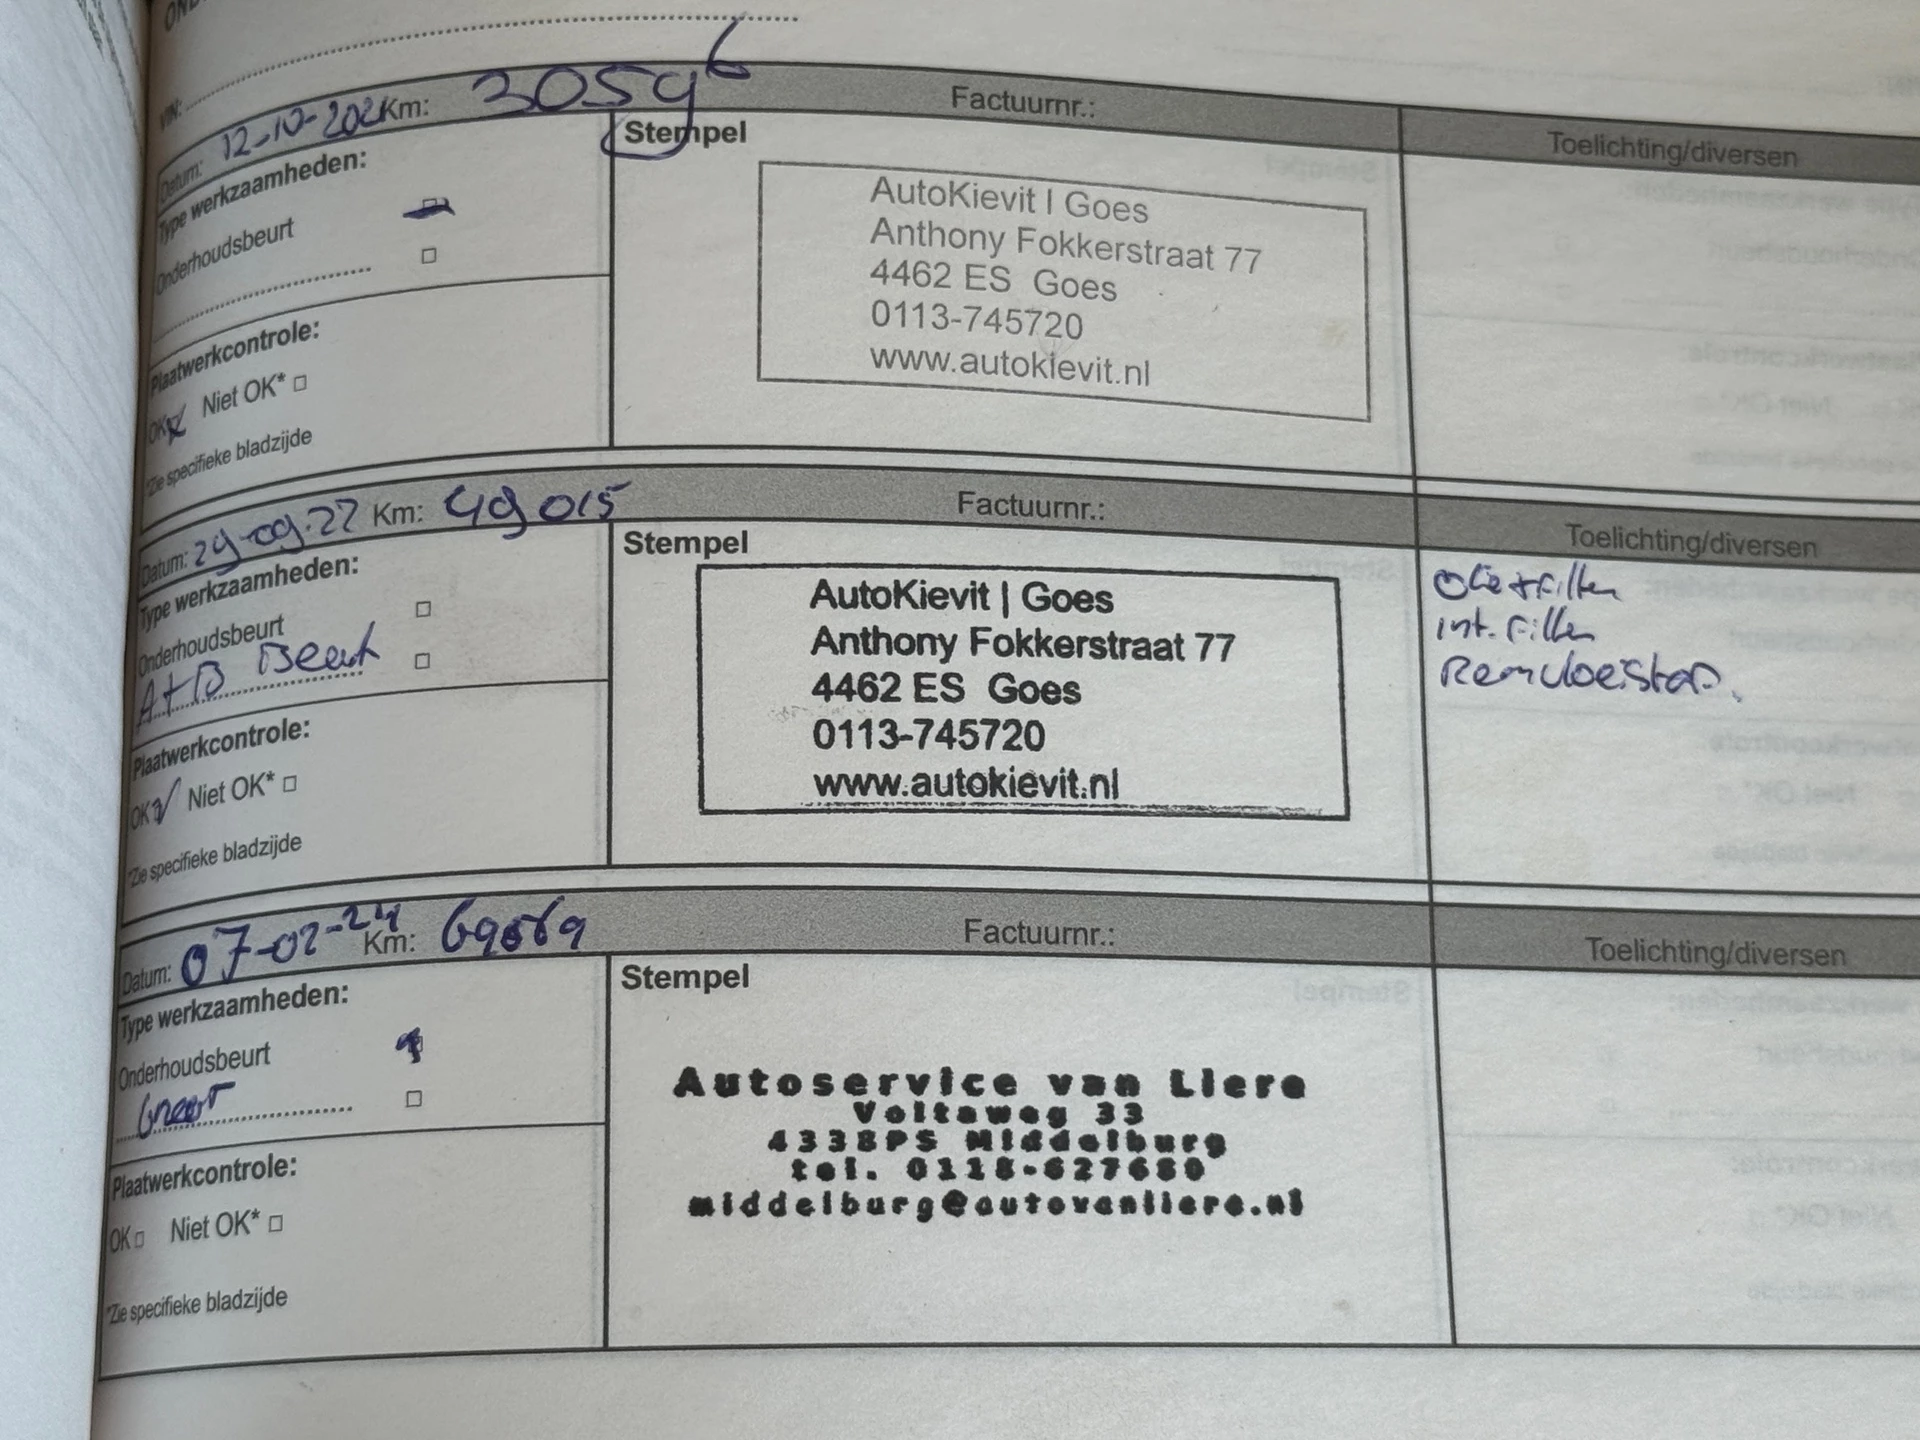 VIN:
Datum: 12-10-202 Km: 30596 Factuurnr.: Toelichting/diversen
Type werkzaamheden:
Onderhoudsbeurt
Plaatwerkcontrole:
OK Niet OK*
*Zie specifieke bladzijde
Stempel
AutoKievit | Goes
Anthony Fokkerstraat 77
4462 ES Goes
0113-745720
www.autokievit.nl
Datum: 29-09-22 Km: 49015 Factuurnr.: Toelichting/diversen
Type werkzaamheden:
Onderhoudsbeurt
A+B Beurt
Plaatwerkcontrole:
OK Niet OK*
*Zie specifieke bladzijde
Stempel
AutoKievit | Goes
Anthony Fokkerstraat 77
4462 ES Goes
0113-745720
www.autokievit.nl
Olie+filter
int. filter
Remvloeistof.
Datum: 07-02-24 Km: 69569 Factuurnr.: Toelichting/diversen
Type werkzaamheden:
Onderhoudsbeurt
Groot
Plaatwerkcontrole:
OK Niet OK*
*Zie specifieke bladzijde
Stempel
Autoservice van Liere
Voltaweg 33
4338PS Middelburg
tel. 0118-627680
middelburg@autovanliere.nl